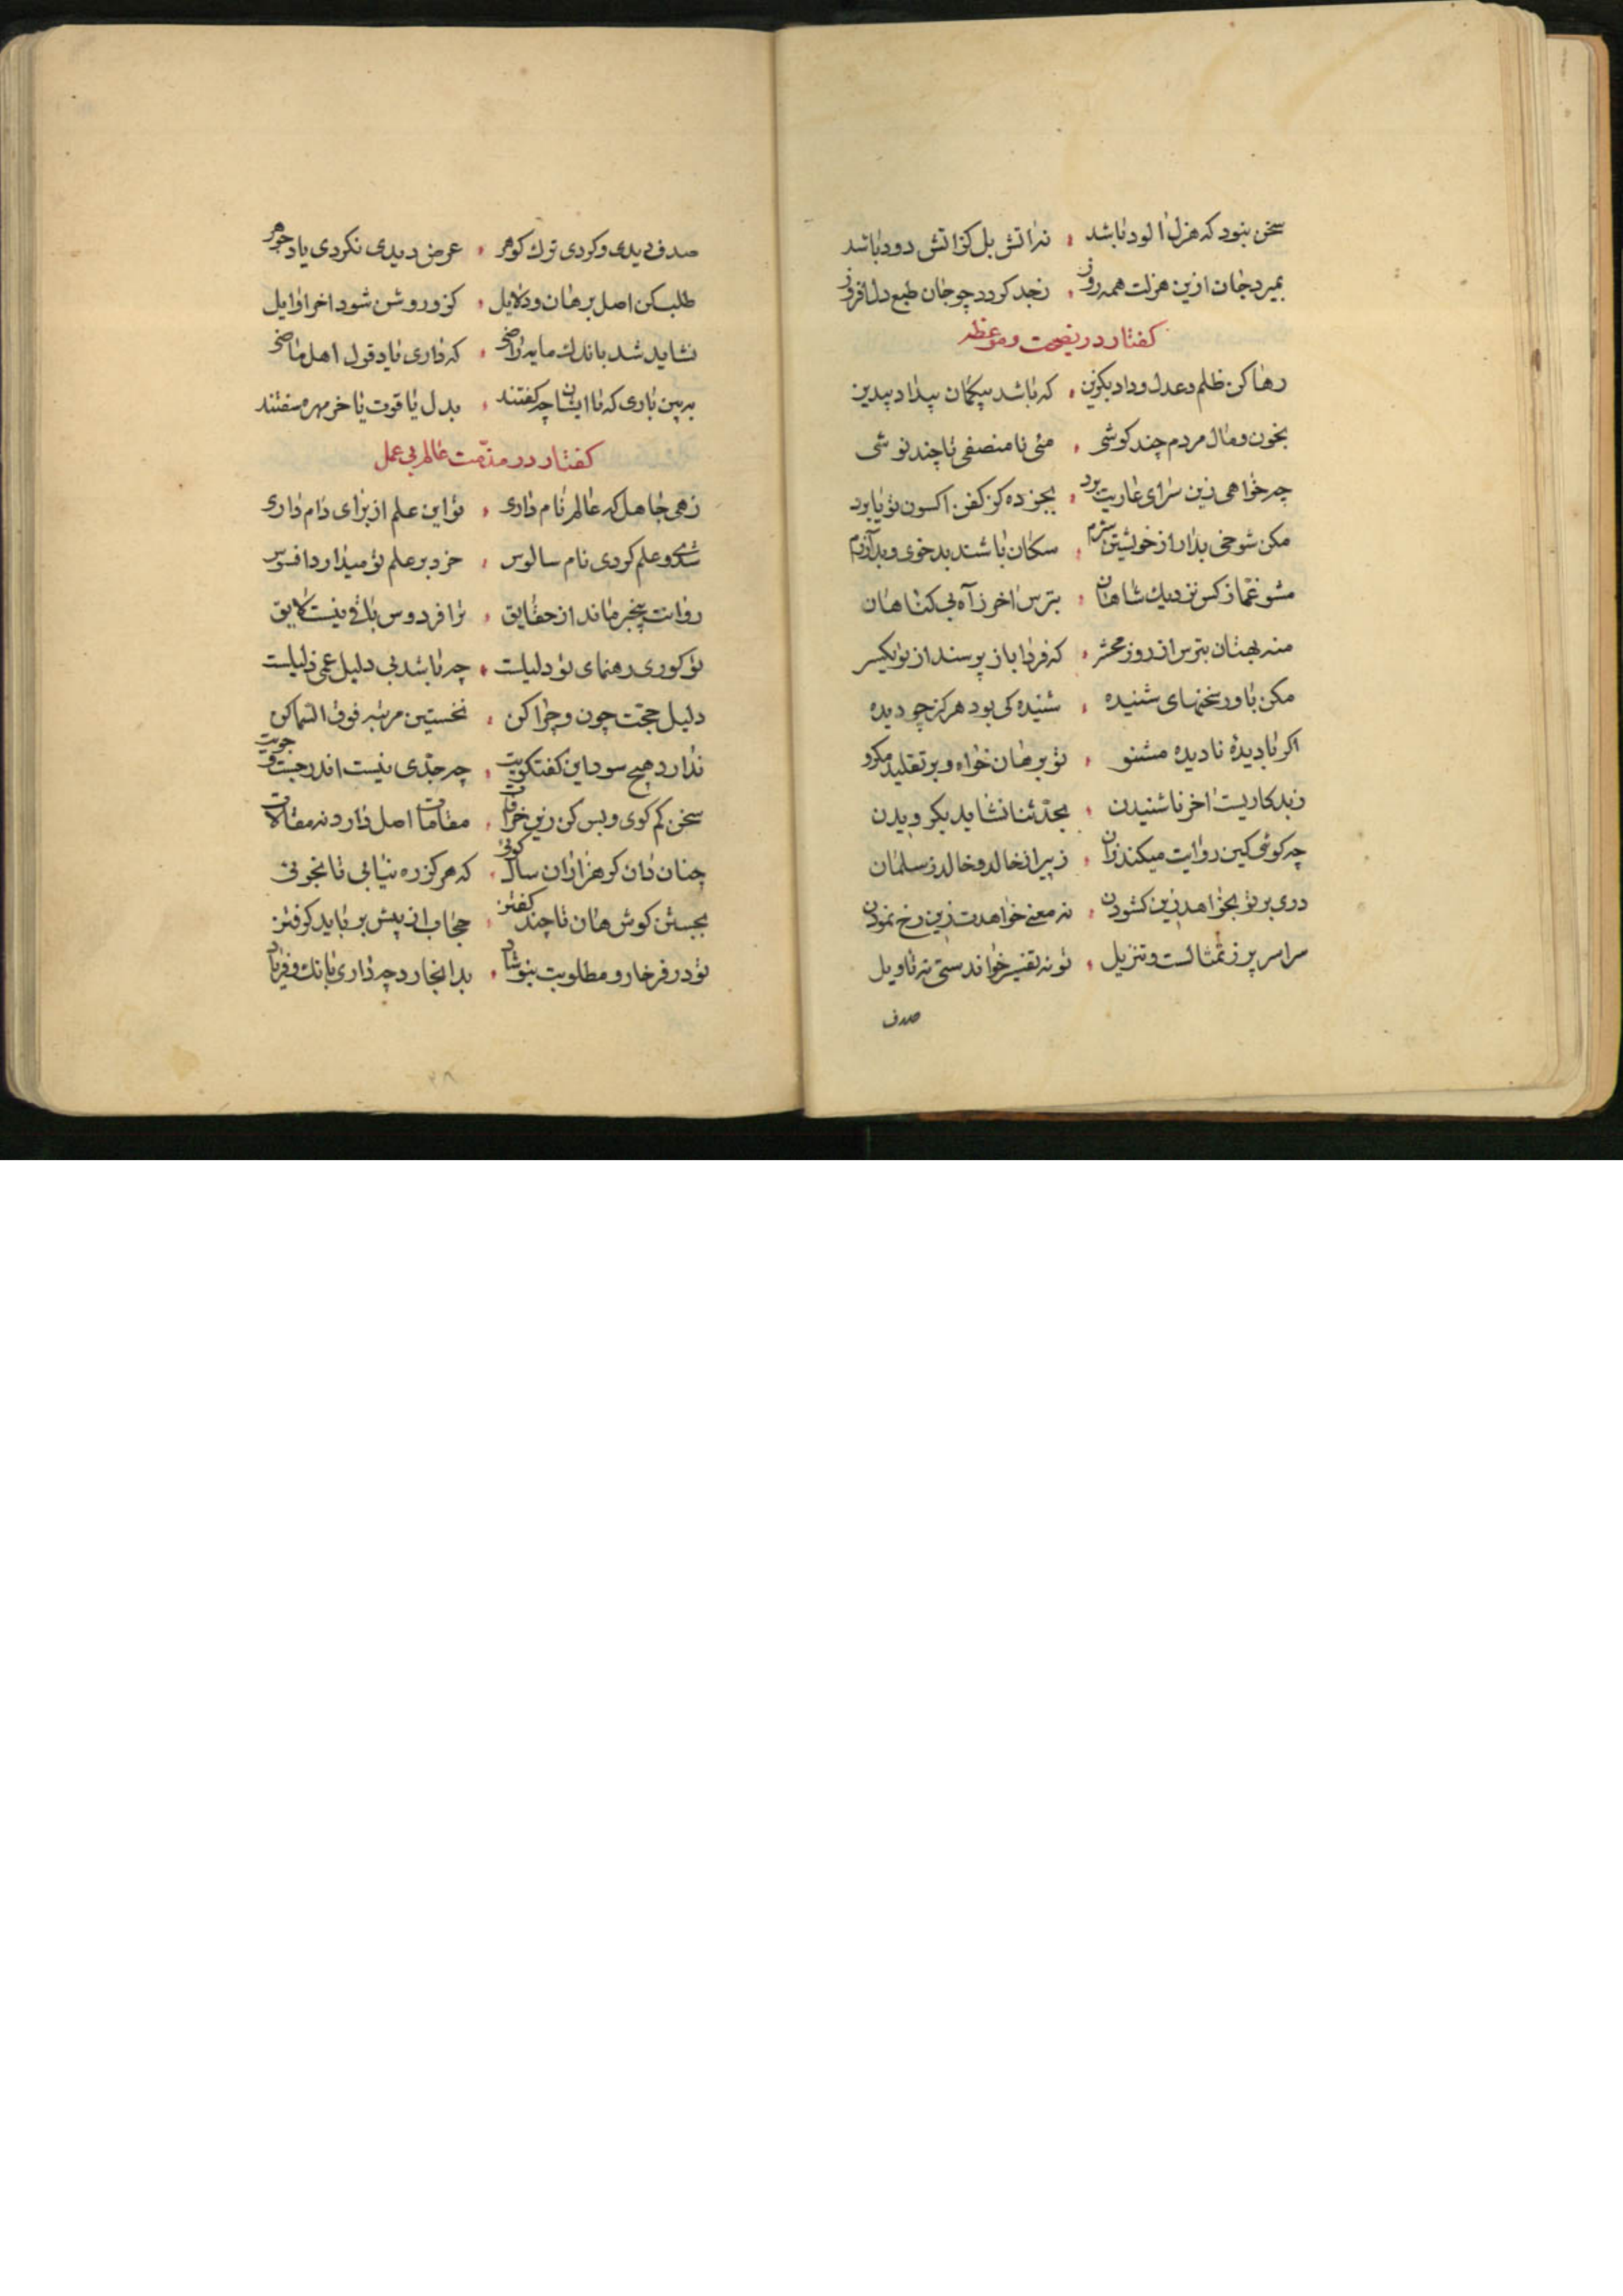 سخن نبود که هزل الود باشد ، نه اتش بل کز اتش دود باشد
بمیرد جان ازین هزلت همه روز ، نجد کردد چو جان طبع دل افروز
کفتار در نصیحت و موعظه
رها کن ظلم و عدل و داد بکزین ، که باشد بیکمان بیداد بیدین
بخون و مال مردم چند کوشی ، می نا منصفی تا چند نوشی
چه خواهی زین سرای عاریت برد ، بجز ده کز کفن اکسون تو یا برد
مکن شوخی بدار از خویشتن شرم ، سکان باشند بدخوی و بد آزرم
مشو غماز کس نزدیك شاهان ، بترس اخر ز آه بی کناهان
منه بهتان بترس از روز محشر ، که فردا باز پرسند از تو یکسر
مکن باور سخنهای شنیده ، شنیده کی بود هرکز چو دیده
اکر نادیدهٔ نادیده مشنو ، تو برهان خواه و بر تقلید مکرو
ز بد کاریست اخر ناشنیدن ، بحدثنا نشاید بکرویدن
چه کوئی کین روایت میکند زان ، ز پیران خالد و خالد ز سلمان
دری بر تو بخواهد زین کشودن ، نه معنی خواهدت زین رخ نمودن
سراسر پر ز تمثالست و تنزیل ، تو نه تفسیر خواندستی نه تاویل
صدف
صدف دیدی و کردی ترك کوهر ، عرض دیدی نکردی یاد جوهر
طلب کن اصل برهان و دلایل ، کزو روشن شود اخر اوایل
نشاید شد باندك مایه راضی ، که داری یاد قول اهل ماضی
ببین باری که تا ایشان چه کفتند ، بدل یاقوت یا خرمهره سفتند
کفتار در مذمّت عالم بی عمل
زهی جاهل که عالم نام داری ، تو این علم از برای دام داری
شدی و علم کردی نام سالوس ، خرد بر علم تو میدارد افسوس
روانت بیخبر ماند از حقایق ، ترا فردوس باقی نیست لایق
تو کوری رهنمای تو دلیلست ، چه باشد بی دلیل عمی ذلیلست
دلیل حجت چون و چرا کن ، نخستین مرتبه فوق السما کن
ندارد هیچ سود این کفتکویت ، چه جدّی نیست اندر جست و جویت
سخن کم کوی و بس کن زین خرافات ، مقامات اصل دارد نه مقالات
چنان دان کر هزاران سال کوئی ، که هرکز ره نیابی تا نجوئی
بجستن کوش هان تا چند کفتن ، حجاب از پیش بر باید کرفتن
تو در فرخار و مطلوبت بنوشاد ، بدانجا رد چه داری بانك و فریاد